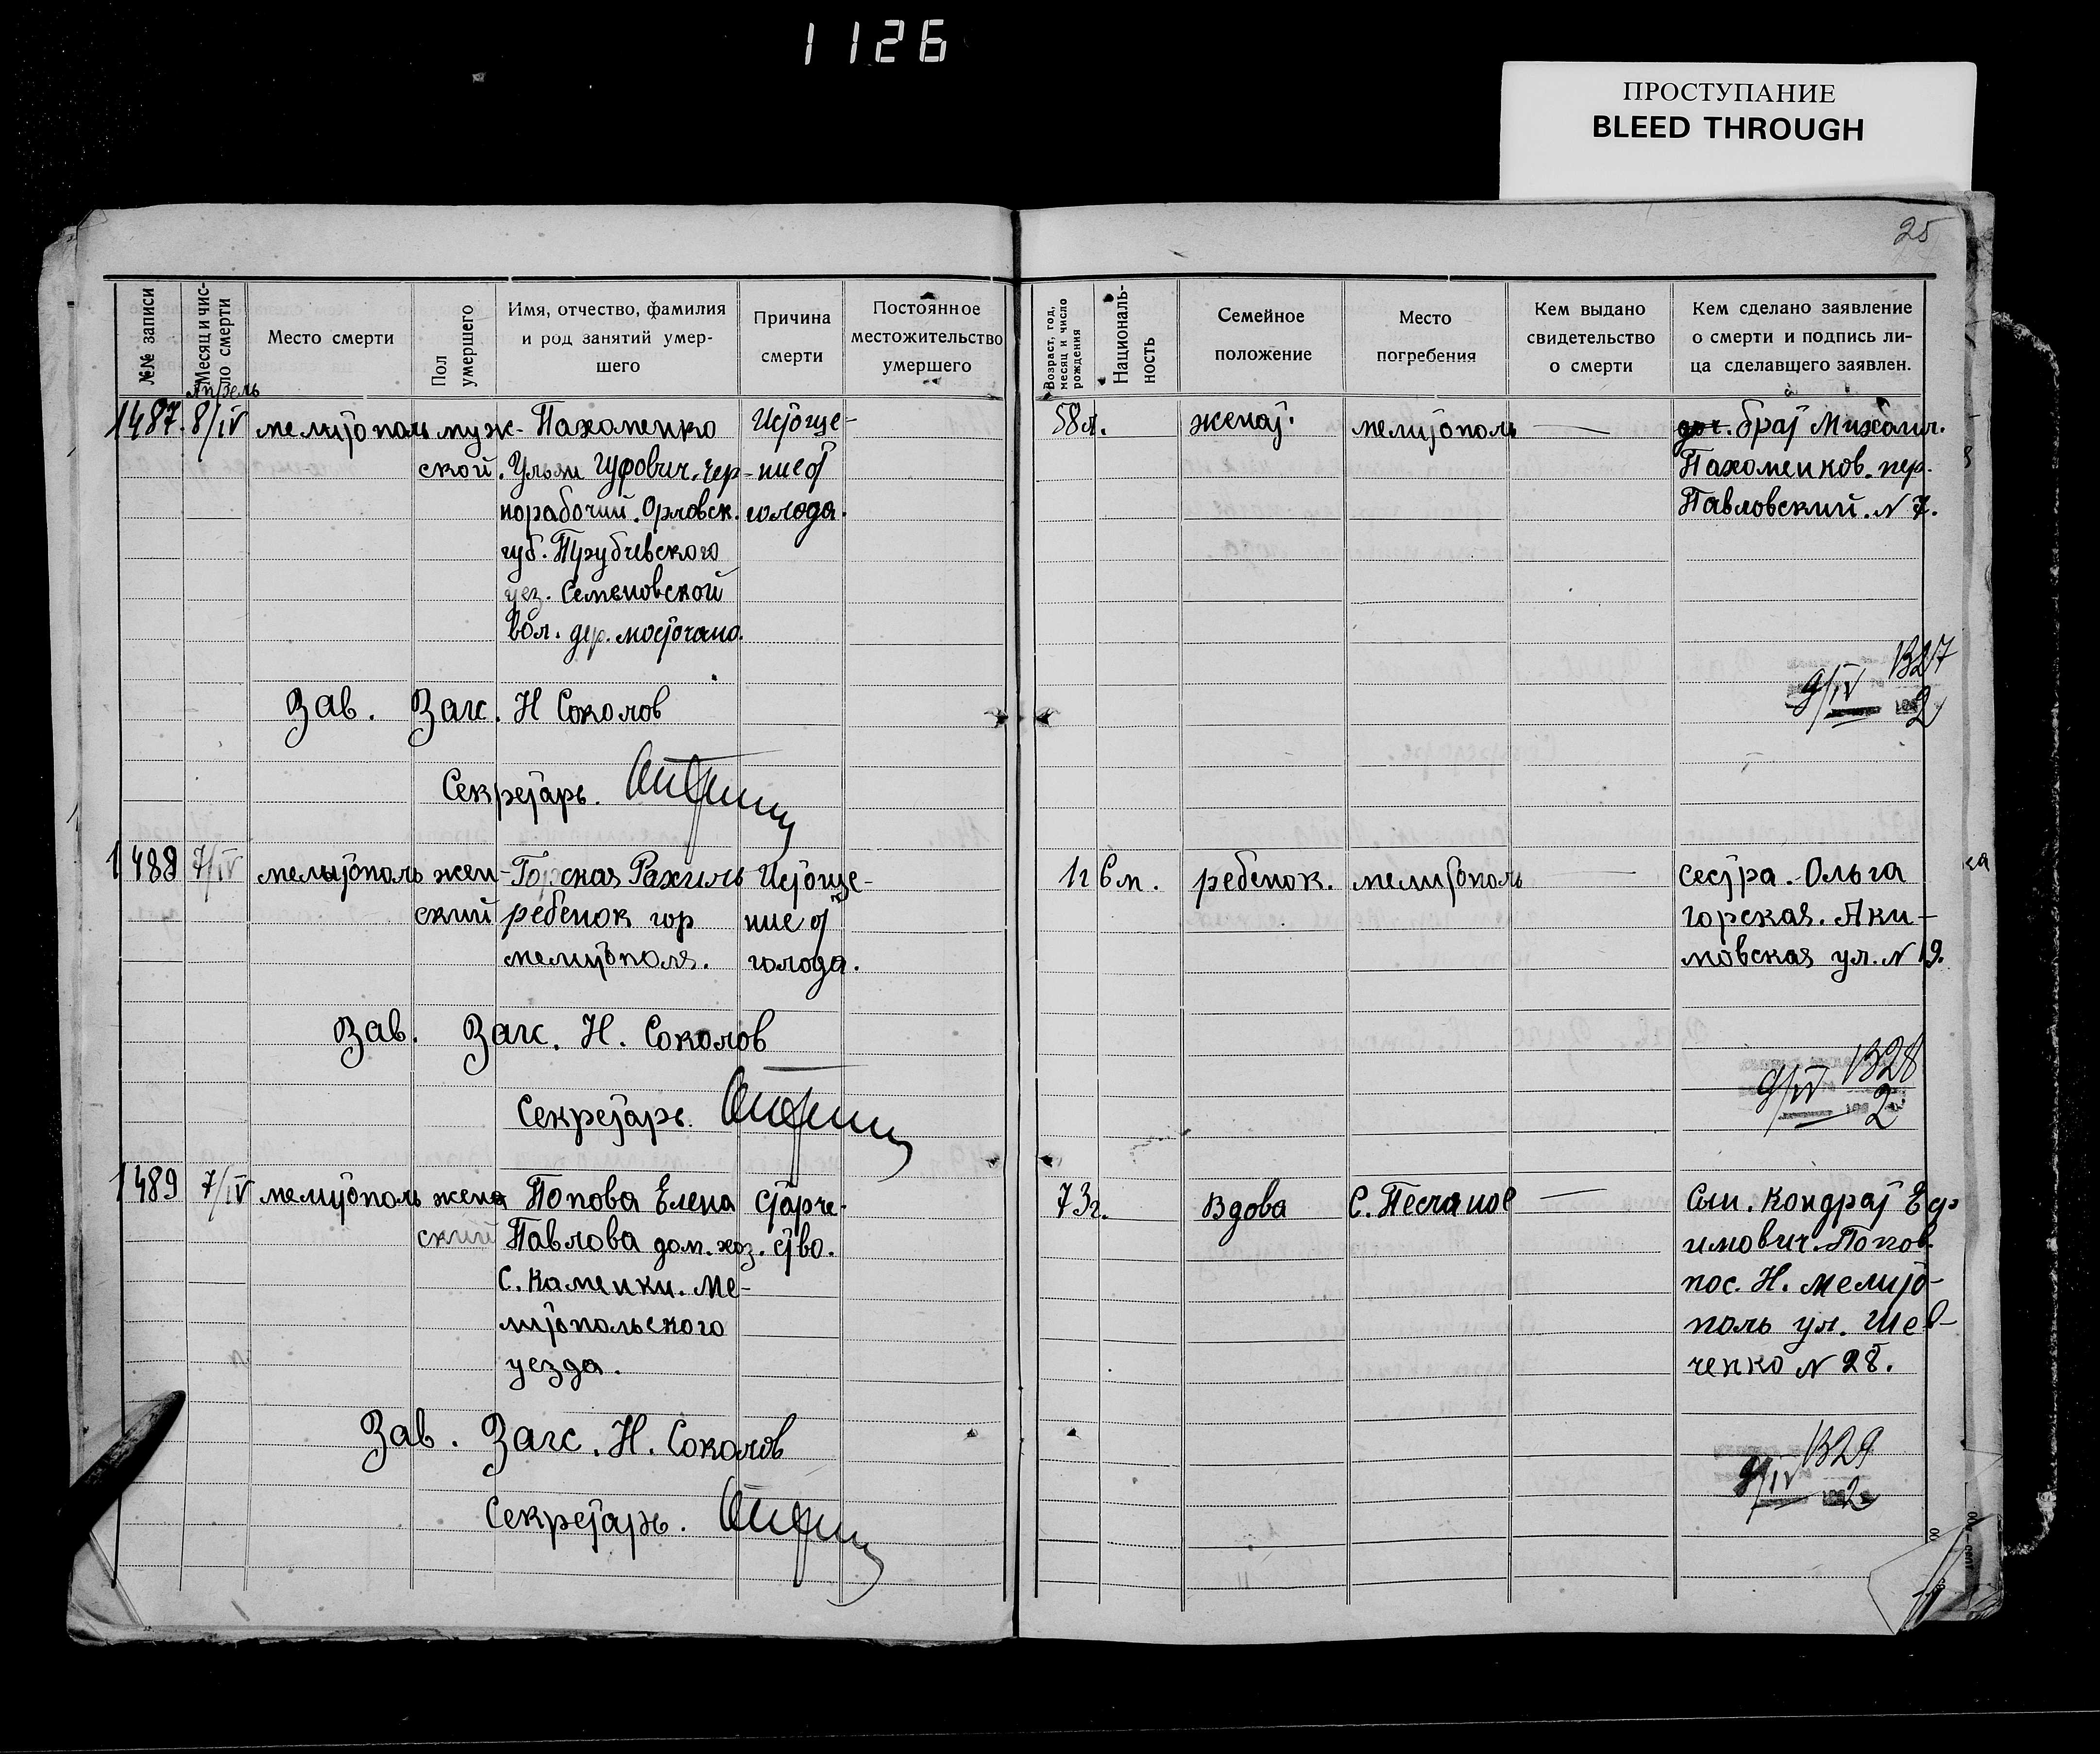 1126
ПРОСТУПАНИЕ
BLEED THROUGH
25
№№ записи
Месяц и число смерти
Место смерти
Пол умершего
Имя, отчество, фамилия
и род занятий умер-
шего
Причина
смерти
Постоянное
местожительство
умершего
Возраст, год,
месяц и число
рождения
Националь-
ность
Семейное
положение
Место
погребения
Кем выдано
свидетельство
о смерти
Кем сделано заявление
о смерти и подпись ли-
ца сделавщего заявлен.
Апрель
1487. 8/IV мелитополь муж- Пахоменко Истоще- 58л. женат. мелитополь — дот. брат Михаил.
ской. Ульян Гурович. чер- ние от Пахоменков. пер.
норабочий. Орловск. голода. Павловский. N 7.
губ. Трубчевского
уез. Семеновской
вол. дер.
1327
9/IV 2
Зав. Загс. Н Соколов
Секретарь.
1488 7/IV мелитополь жен- Горская Рахиль Истоще- 1г 6 м. ребенок. мелитополь — сестра. Ольга
ский ребенок гор ние от горская. Аки-
мелитополя. голода. мовская ул. N 19.
Зав. Загс. Н. Соколов
1328
9/IV 2
Секретарь.
1489 7/IV мелитополь жен Попова Елена старче- 73г. Вдова С. Песчаное — Сын. Кондрат Еф
ский Павлова дом. хоз. ство. имович. Попов
С. Каменки. Ме- пос. Н. Мелито-
литопольского поль ул. Шев-
уезда. ченко N 28.
Зав. Загс. Н. Соколов
1329
9/IV 2
Секретарь.